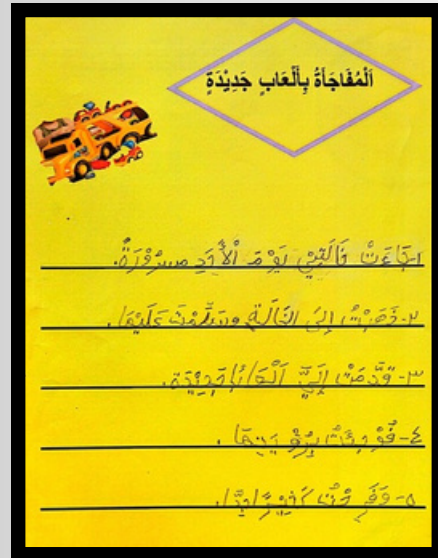 اَلْمُفَاجَأَةُ بِأَلْعَابٍ جَدِيْدَةٍ
١- جَاءَتْ خَالَتِيْ يَوْمَ الْأَحَدِ مسرُوْرَةً.
٢- ذَهَبْتُ إِلَى الخَالَةِ وسَلَّمْتُ عَلَيْهَا.
٣- قَدَّمَتْ إِلَيَّ أَلْعَابًا جَدِيْدَةً.
٤- فُوْجِئْتُ بِرُؤْيَتِهَا.
٥- وَفَرِحْتُ كَثِيْرًا جِدًّا.